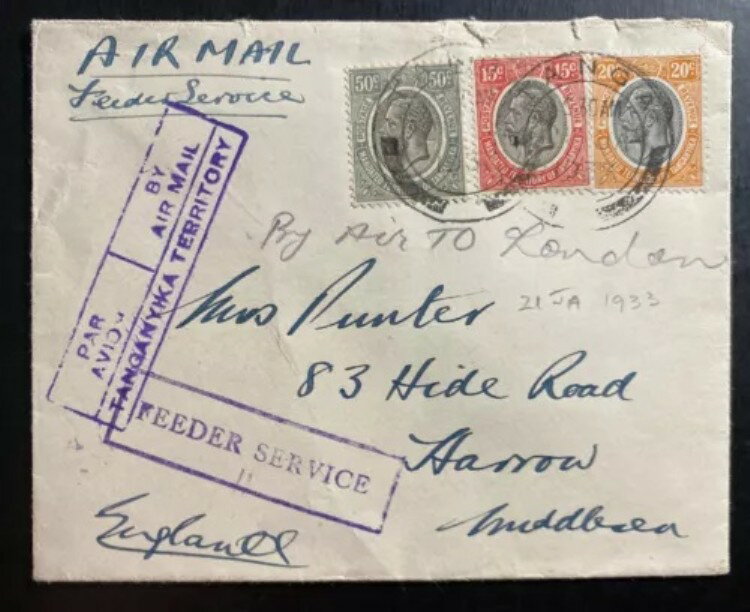 AIR MAIL
Feeder Service
50c 50c
15c 15c
20c 20c
BY
AIR MAIL
PAR
AVION
TANGANYIKA TERRITORY
FEEDER SERVICE
By Air TO London
21 JA 1933
Mrs Punter
83 Hide Road
Harrow
Middlesex
England